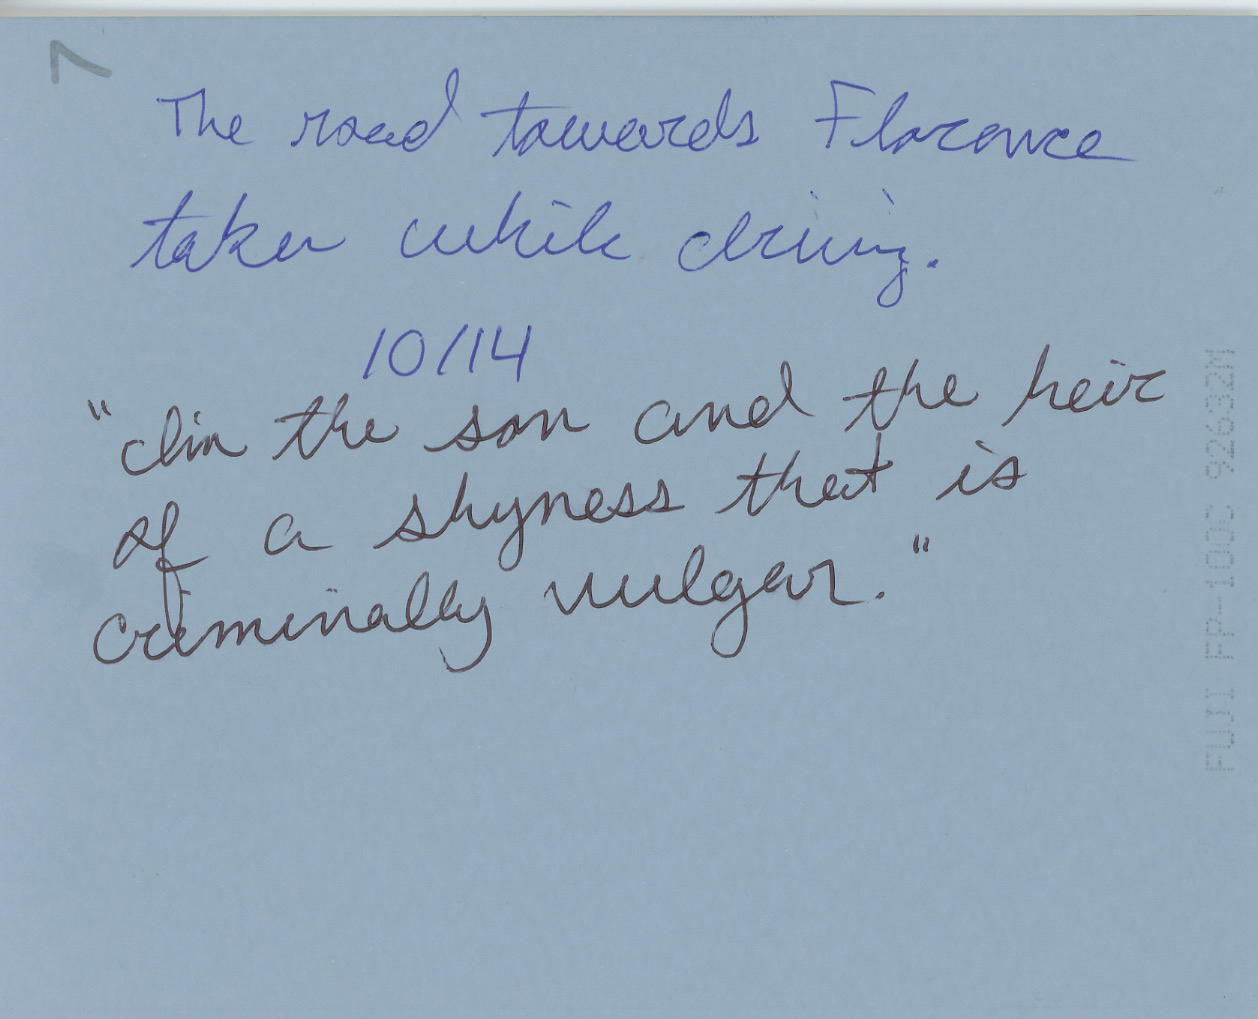 7
The road towards Florence
taken while driving.
10/14
"I'm the son and the heir
of a shyness that is
criminally vulgar."
FUJI FP-100C 92632M